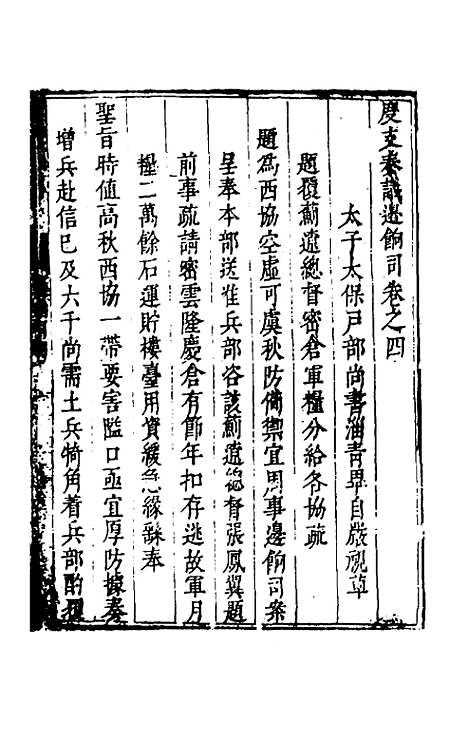 度支奏議邊餉司卷之四
太子太保戶部尚書淄青畢自嚴硯草
題覆薊遼總督密倉軍糧分給各協疏
題為西協空虛可虞秋防備禦宜周事邊餉司案
呈奉本部送准兵部咨該薊遼總督張鳳翼題
前事疏請密雲隆慶倉有節年扣存逃故軍月
糧二萬餘石運貯樓臺用資緩急緣繇奉
聖旨時值高秋西協一帶要害隘口亟宜厚防據奏
增兵赴信已及六千尚需土兵犄角着兵部酌